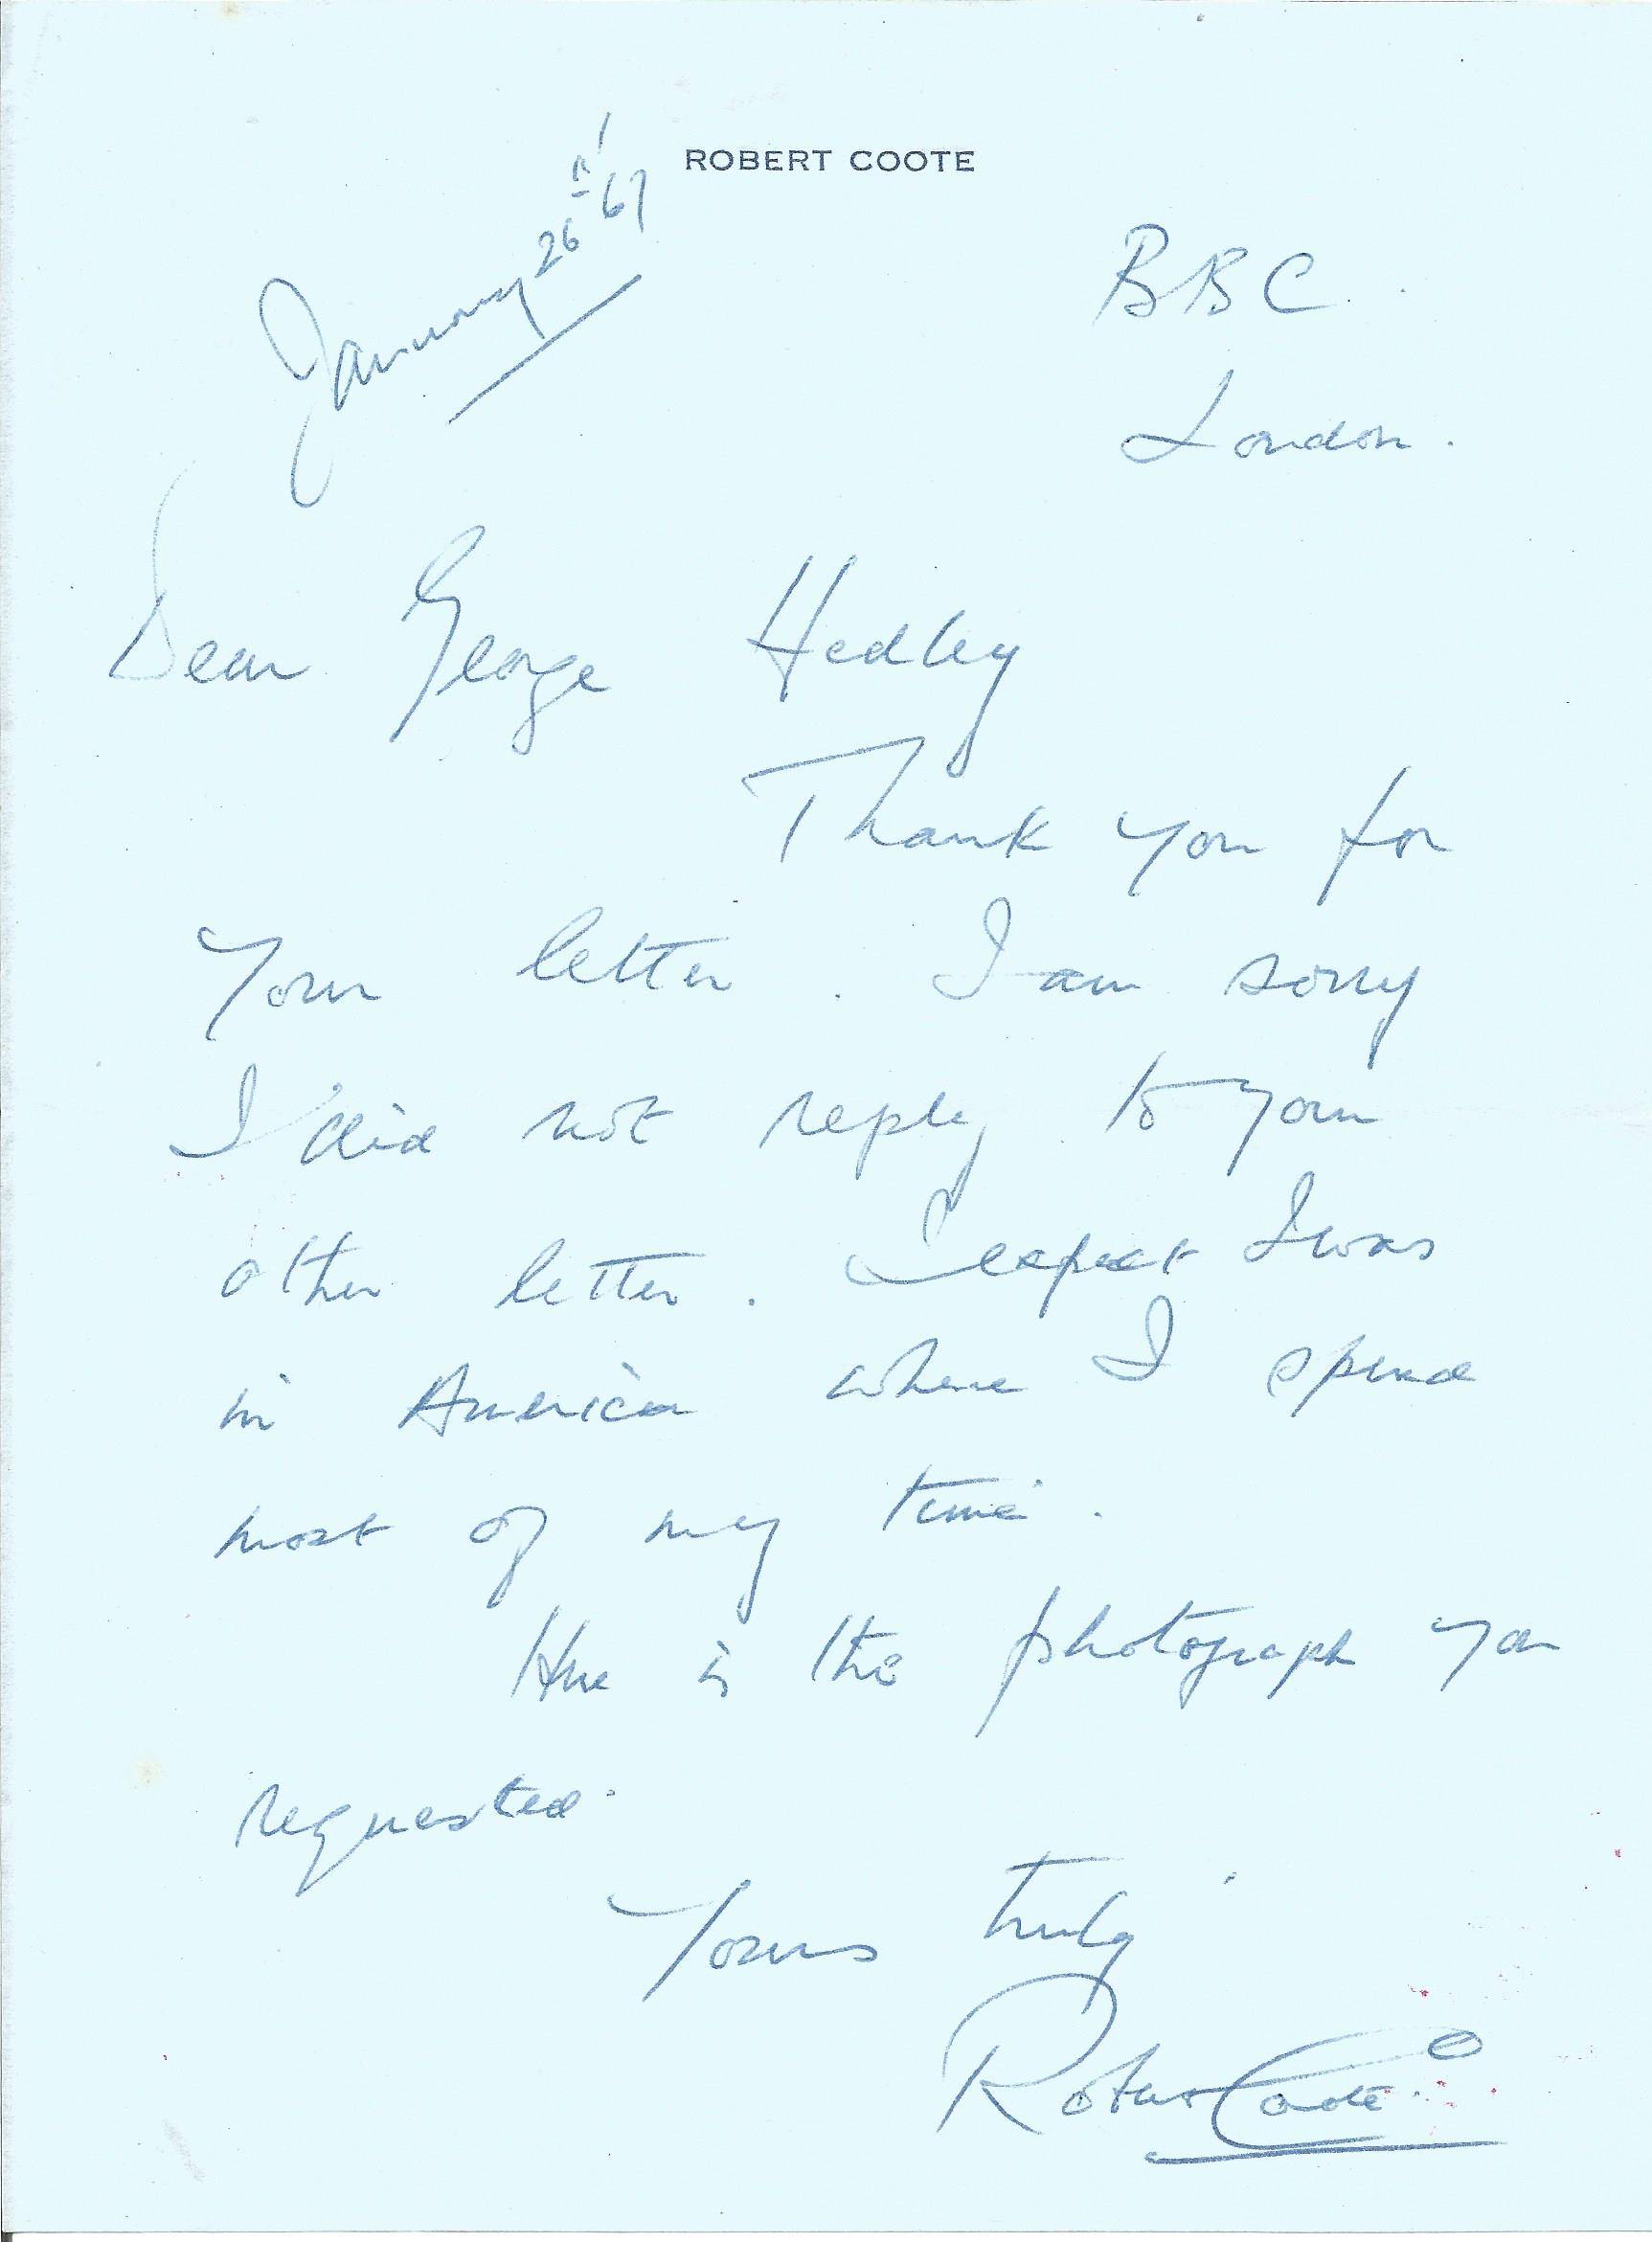 ROBERT COOTE
January 26th '67
BBC.
London.
Dear George Hedley
Thank you for
your letter. I am sorry
I did not reply to your
other letter. I expect I was
in America where I spend
most of my time.
Here is the photograph you
requested.
Yours truly
Robert Coote